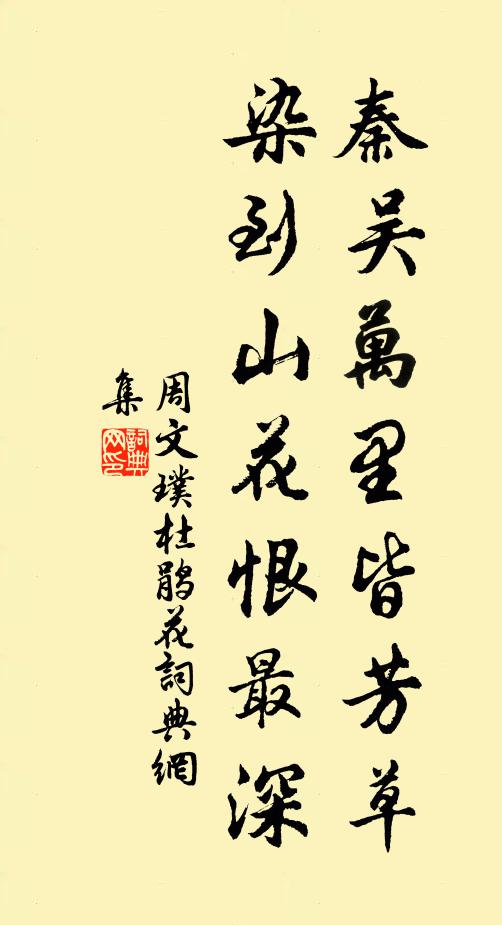 秦吴萬里皆芳草
染到山花恨最深
周文璞杜鵑花詞典網
集
詞典网印